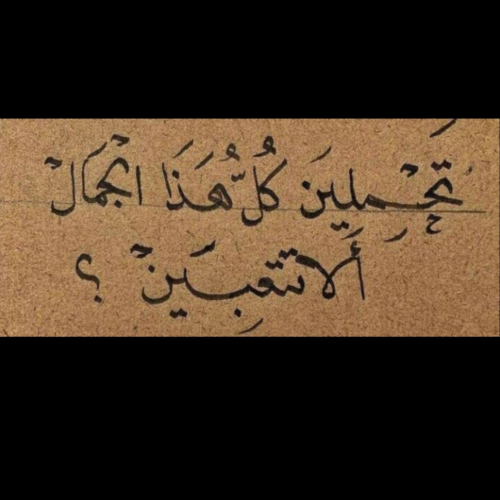 تَحْمِلِينَ كُلُّ هَذَا الْجَمَالْ
أَلَا تَتْعَبِينْ ؟